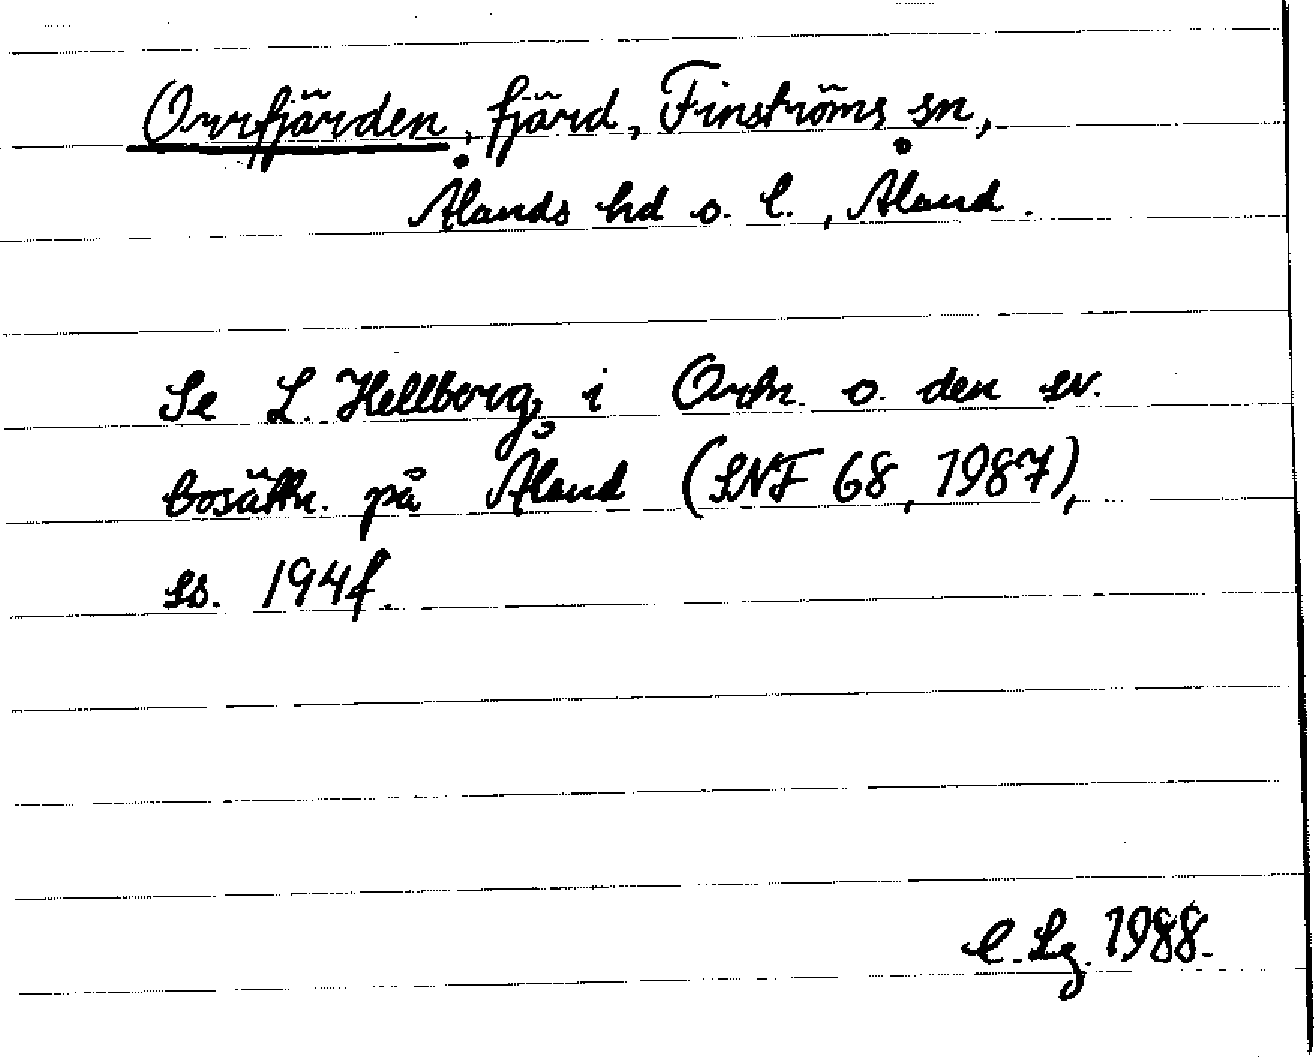 Orrfjärden, fjärd, Finströms sn,
Ålands hd o. l., Åland.
Se L. Hellberg, i Ortn. o. den sv.
bosättn. på Åland (SNF 68, 1987),
ss. 194f.
C. Lg. 1988.